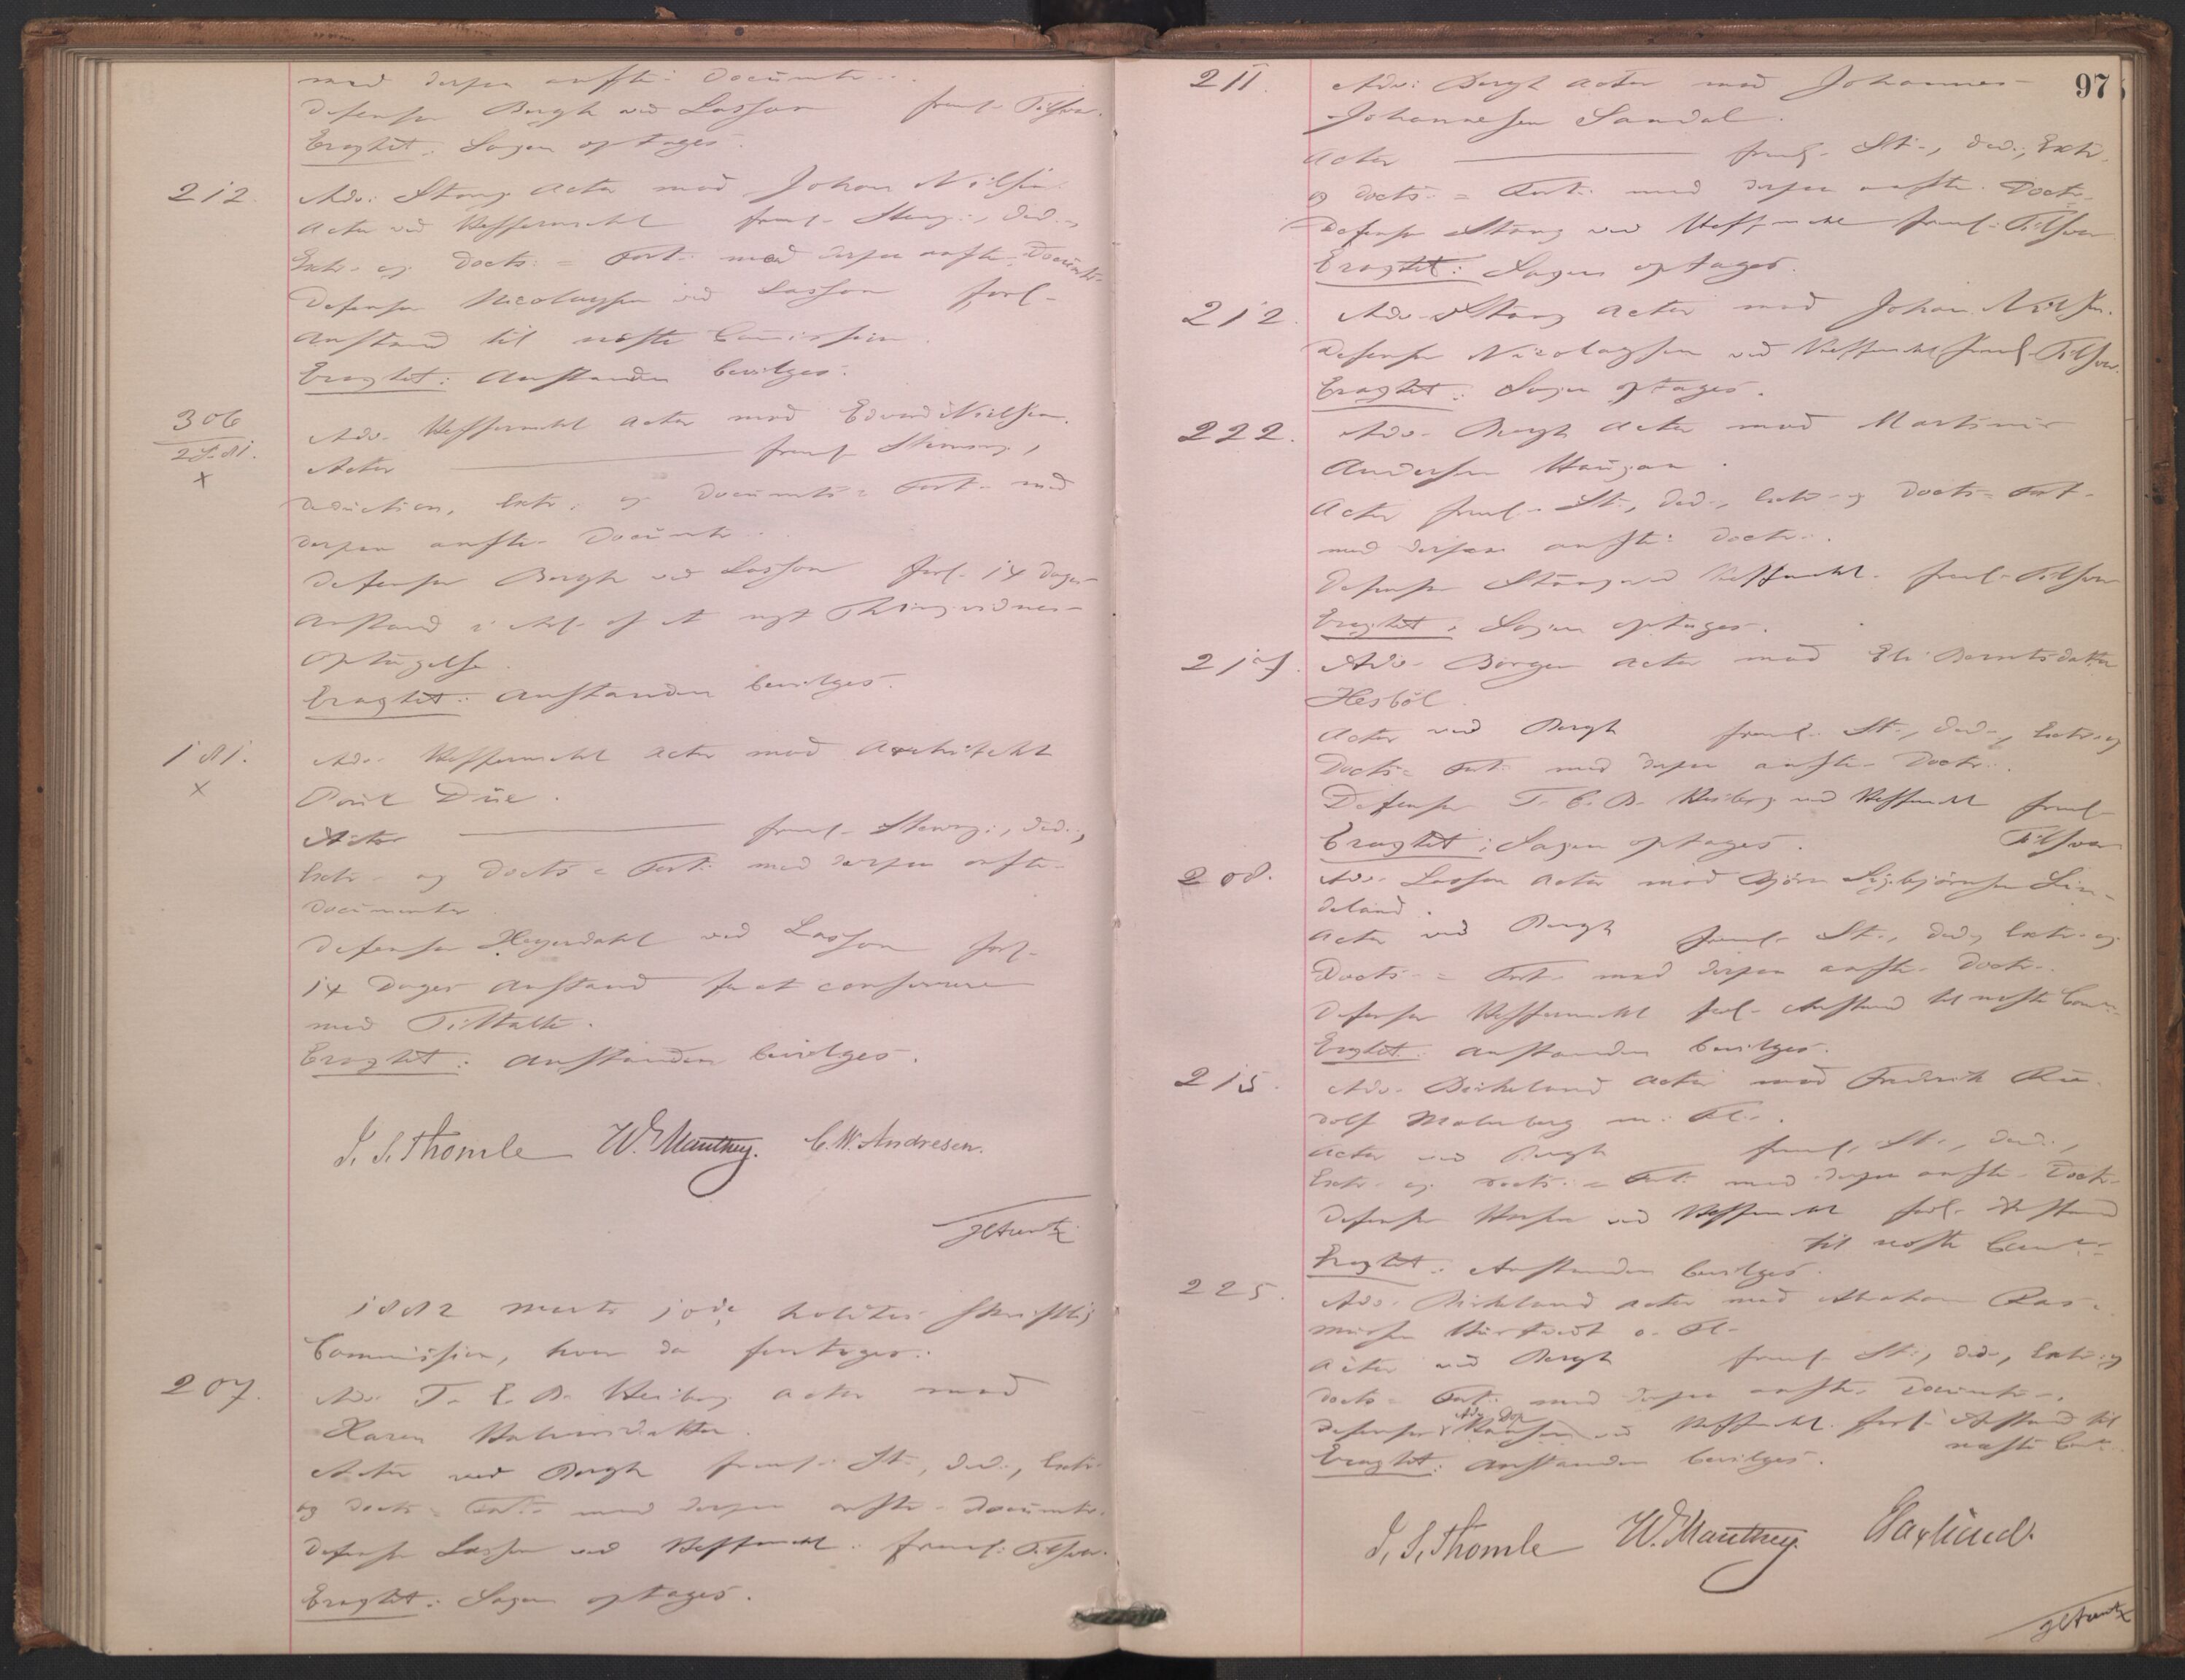 med derpaa anførte Documenter.
Defensor Bergh ved Lasson freml. Tilsvar.
Eragtet: Sagen optages.
212. Adv. Stang Actor mod Johan Nilsen.
Actor ved Hesselberg freml. Stevng., Ded.,
Extr. og Docts = Fort. med derpaa anførte Documtr.
Defensor Nicolaysen ved Lasson forl.
Anstand til næste Commission.
Eragtet: Anstanden bevilges.
306
28-81.
x
Adv. Actor mod Edvard Nielsen.
Actor freml. Stevning,
Deduction, Extr. og Documts = Fort. med
derpaa anførte Documtr.
Defensor Bergh ved Lasson forl. 14 Dages
Anstand i Anl. af et nyt Thingsvidnes
Optagelse.
Eragtet: Anstanden bevilges.
181.
x
Adv. Actor mod Architekt
Paul Due.
Actor freml. Stevng., Ded.,
Extr. og Docts = Fort. med derpaa anførte
Documenter
Defensor Heyerdahl ved Lasson forl.
14 Dages Anstand for at conferere
med Tiltalte.
Eragtet: Anstanden bevilges.
J. S. Thomle W. Manthey. C. W. Andresen.
1882 Marts 10de holdtes skriftlig
Commission, hvor da foretoges:
207. Adv. T. E. B. Heiberg Actor mod
Karen Halvorsdatter.
Actor ved Bergh freml. St., Ded., Extr.
og Docts = Fort. med derpaa anførte Documtr.
Defensor Lasson ved freml. Tilsvar.
Eragtet: Sagen optages.
97
211. Adv. Bergh Actor mod Johannes
Johannesen Sandal.
Actor freml. St., Ded., Extr.
og Docts = Fort. med derpaa anførte Doctr.
Defensor Stang ved freml. Tilsvar
Eragtet: Sagen optages.
212. Adv. Stang Actor mod Johan Nilsen.
Defensor Nicolaysen ved freml. Tilsvar.
Eragtet: Sagen optages.
222. Adv. Bergh Actor mod Martinus
Andersen Haugan.
Actor freml. St., Ded., Extr. og Docts = Fort.
med derpaa anførte Doctr.
Defensor Stang ved freml. Tilsvar
Eragtet: Sagen optages.
217. Adv. Børgen Actor mod Eli Berntsdatter
Hesböl.
Actor ved Bergh freml. St., Ded., Extr. og
Docts = Fort. med derpaa anførte Doctr.
Defensor T. E. B. Heiberg ved freml.
Eragtet: Sagen optages. Tilsvar
208. Adv. Lasson Actor mod Björn Sigbjörnsen Lin-
deland.
Actor ved Bergh freml. St., Ded., Extr. og
Docts = Fort. med derpaa anførte Doctr.
Defensor forl. Anstand til næste Comm.
Eragtet: Anstanden bevilges.
215. Adv. Birkeland Actor mod Fredrik Ru-
dolf Malmberg m. Fl.
Actor ved Bergh freml. St., Ded.,
Extr. og Docts = Fort. med derpaa anførte Doctr.
Defensor ved forl. Anstand
til næste Comm.
Eragtet: Anstanden bevilges.
225. Adv. Birkeland Actor mod Abraham Ras-
mussen o. Fl.
Actor ved Bergh freml. St., Ded., Extr. og
Docts = Fort. med derpaa anførte Documtr.
Defensor Hansen ved forl. Anstand til
næste Comm.
Eragtet: Anstanden bevilges.
J. S. Thomle W. Manthey.